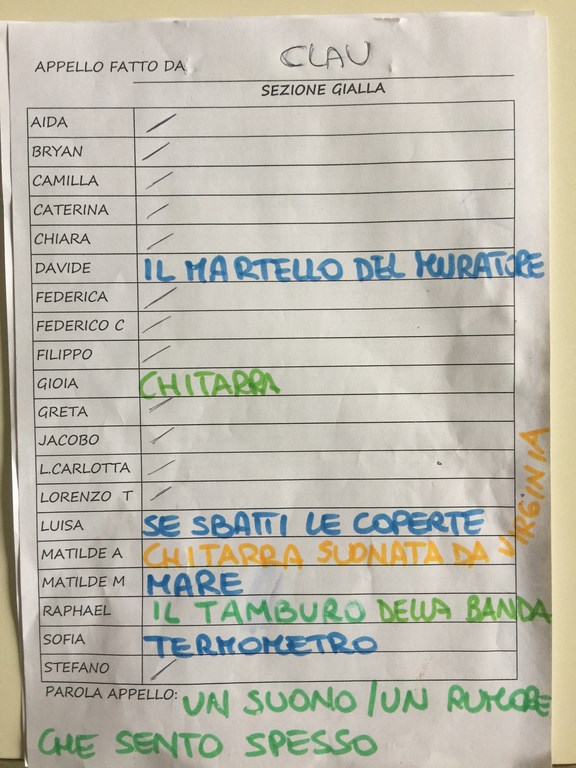 APPELLO FATTO DA CLAU
SEZIONE GIALLA
AIDA /
BRYAN /
CAMILLA /
CATERINA /
CHIARA /
DAVIDE IL MARTELLO DEL MURATORE
FEDERICA /
FEDERICO C /
FILIPPO /
GIOIA CHITARRA
GRETA /
JACOBO /
L.CARLOTTA /
LORENZO T /
LUISA SE SBATTI LE COPERTE
MATILDE A CHITARRA SUONATA DA VIRGINIA
MATILDE M MARE
RAPHAEL IL TAMBURO DELLA BANDA
SOFIA TERMOMETRO
STEFANO /
PAROLA APPELLO: UN SUONO / UN RUMORE
CHE SENTO SPESSO